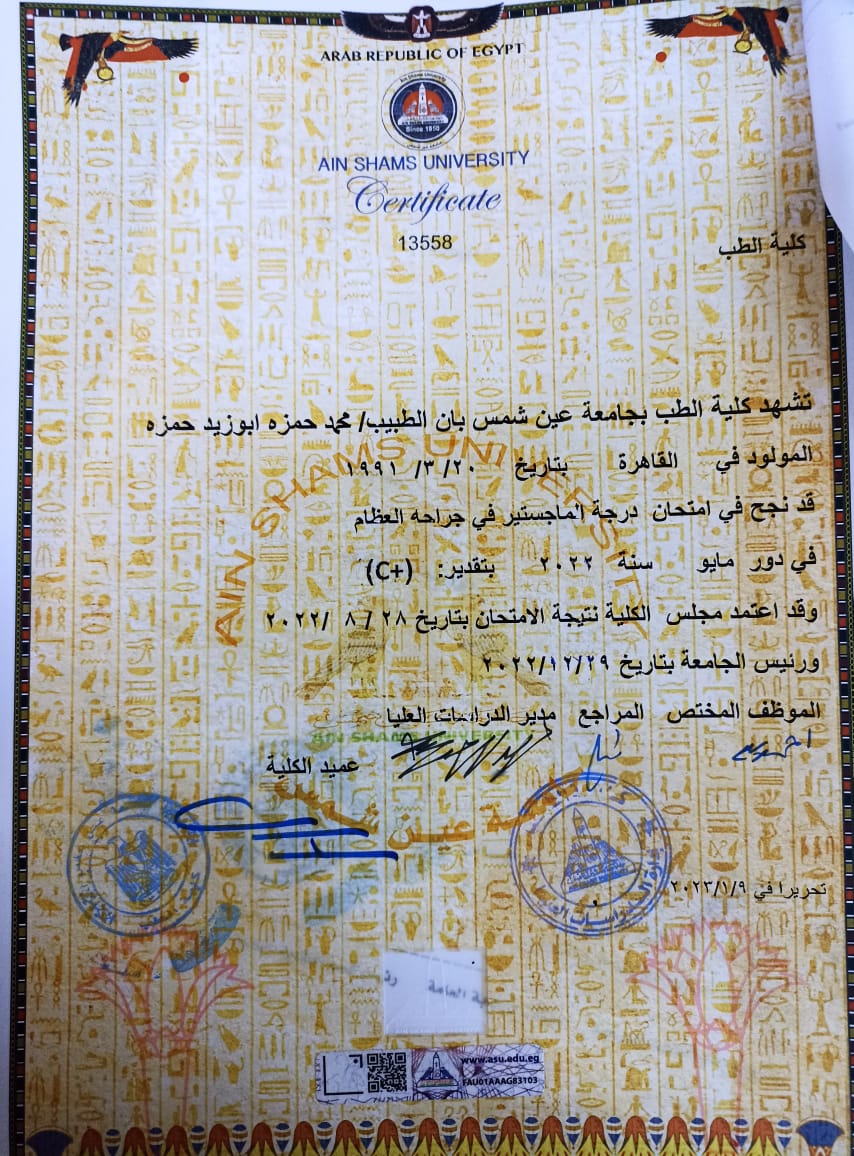 ARAB REPUBLIC OF EGYPT
Ain Shams University
Since 1950
AIN SHAMS UNIVERSITY
Certificate
13558
كلية الطب
تشهد كلية الطب بجامعة عين شمس بان الطبيب/ محمد حمزه ابوزيد حمزه
المولود في القاهرة بتاريخ ٢٠ /٣ /١٩٩١
قد نجح في امتحان درجة الماجستير في جراحه العظام
في دور مايو سنة ٢٠٢٢ بتقدير: (C+)
وقد اعتمد مجلس الكلية نتيجة الامتحان بتاريخ ٢٨ / ٨ /٢٠٢٢
ورئيس الجامعة بتاريخ ٢٠٢٢/١٢/٢٩
الموظف المختص المراجع مدير الدراسات العليا
AIN SHAMS UNIVERSITY
AIN SHAMS UNIVERSITY
عميد الكلية
عين شمس
تحريرا في ٢٠٢٣/١/٩
العامة
www.asu.edu.eg
FAU01AAAG83103